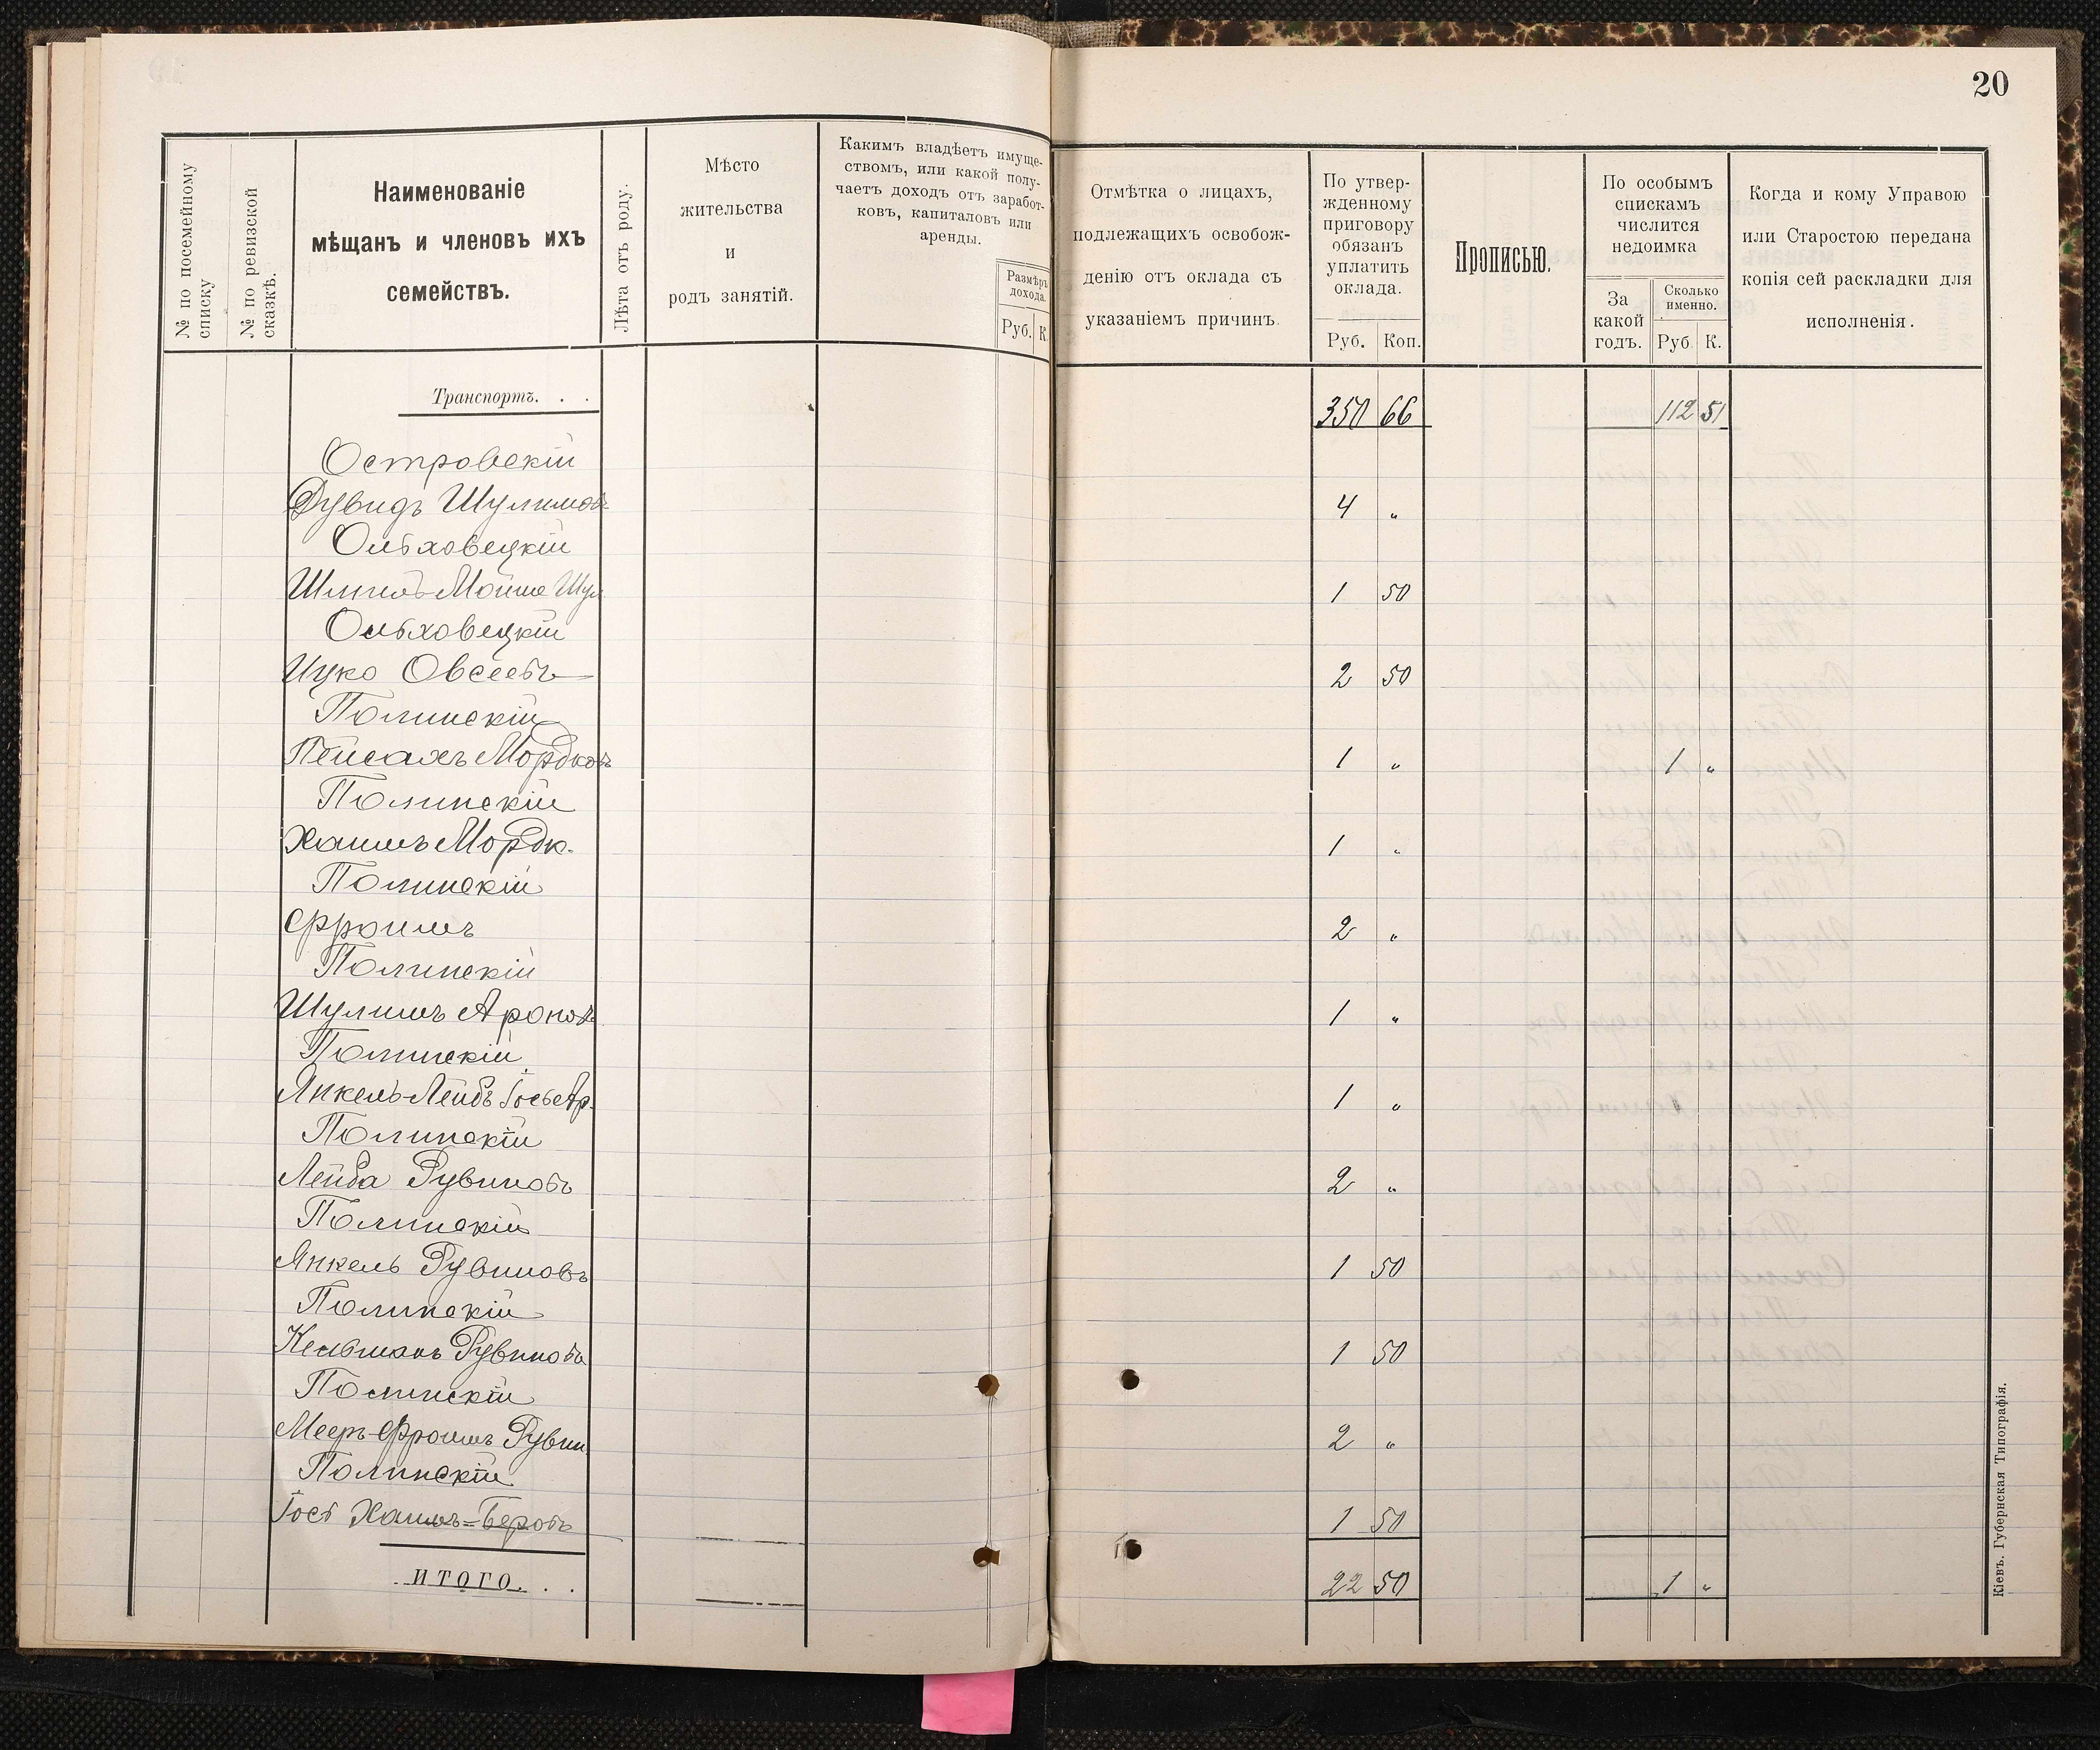 20
№ по посемейному списку
№ по ревизской сказкѣ.
Наименованіе
мѣщанъ и членовъ ихъ
семействъ.
Лѣта отъ роду.
Мѣсто
жительства
и
родъ занятій.
Какимъ владѣетъ имуще-
ствомъ, или какой полу-
чаетъ доходъ отъ заработ-
ковъ, капиталовъ или
аренды.
Размѣръ
дохода.
Руб. К.
Отмѣтка о лицахъ,
подлежащихъ освобож-
денію отъ оклада съ
указаніемъ причинъ.
По утвер-
жденному
приговору
обязанъ
уплатить
оклада.
Руб. Коп.
Прописью.
По особымъ
спискамъ
числится
недоимка
За
какой
годъ.
Сколько
именно.
Руб. К.
Когда и кому Управою
или Старостою передана
копія сей раскладки для
исполненія.
Транспортъ. . . 350 66 112 51
Островскій
Дувидъ Шулимовъ 4 „
Ольховецкій
Шмиль-Мойше Шул 1 50
Ольховецкій
Ицко Овсеевъ 2 50
Полинскій
Пейсахъ Мордковъ 1 „ 1 „
Полинскій
Хаимъ Мордк. 1 „
Полинскій
Фроимъ 2 „
Полинскій
Шулимъ Ароновъ 1 „
Полинскій
Янкель-Лейбъ Іось Ар. 1 „
Полинскій
Лейба Рувиновъ 2 „
Полинскій
Янкель Рувиновъ 1 50
Полинскій
Кельманъ Рувиновъ 1 50
Полинскій
Мееръ-Фроимъ Рувин. 2 „
Полинскій
Іось Хаимъ-Беровъ 1 50
ИТОГО. . . 22 50 1 „
Кіевъ. Губернская Типографія.